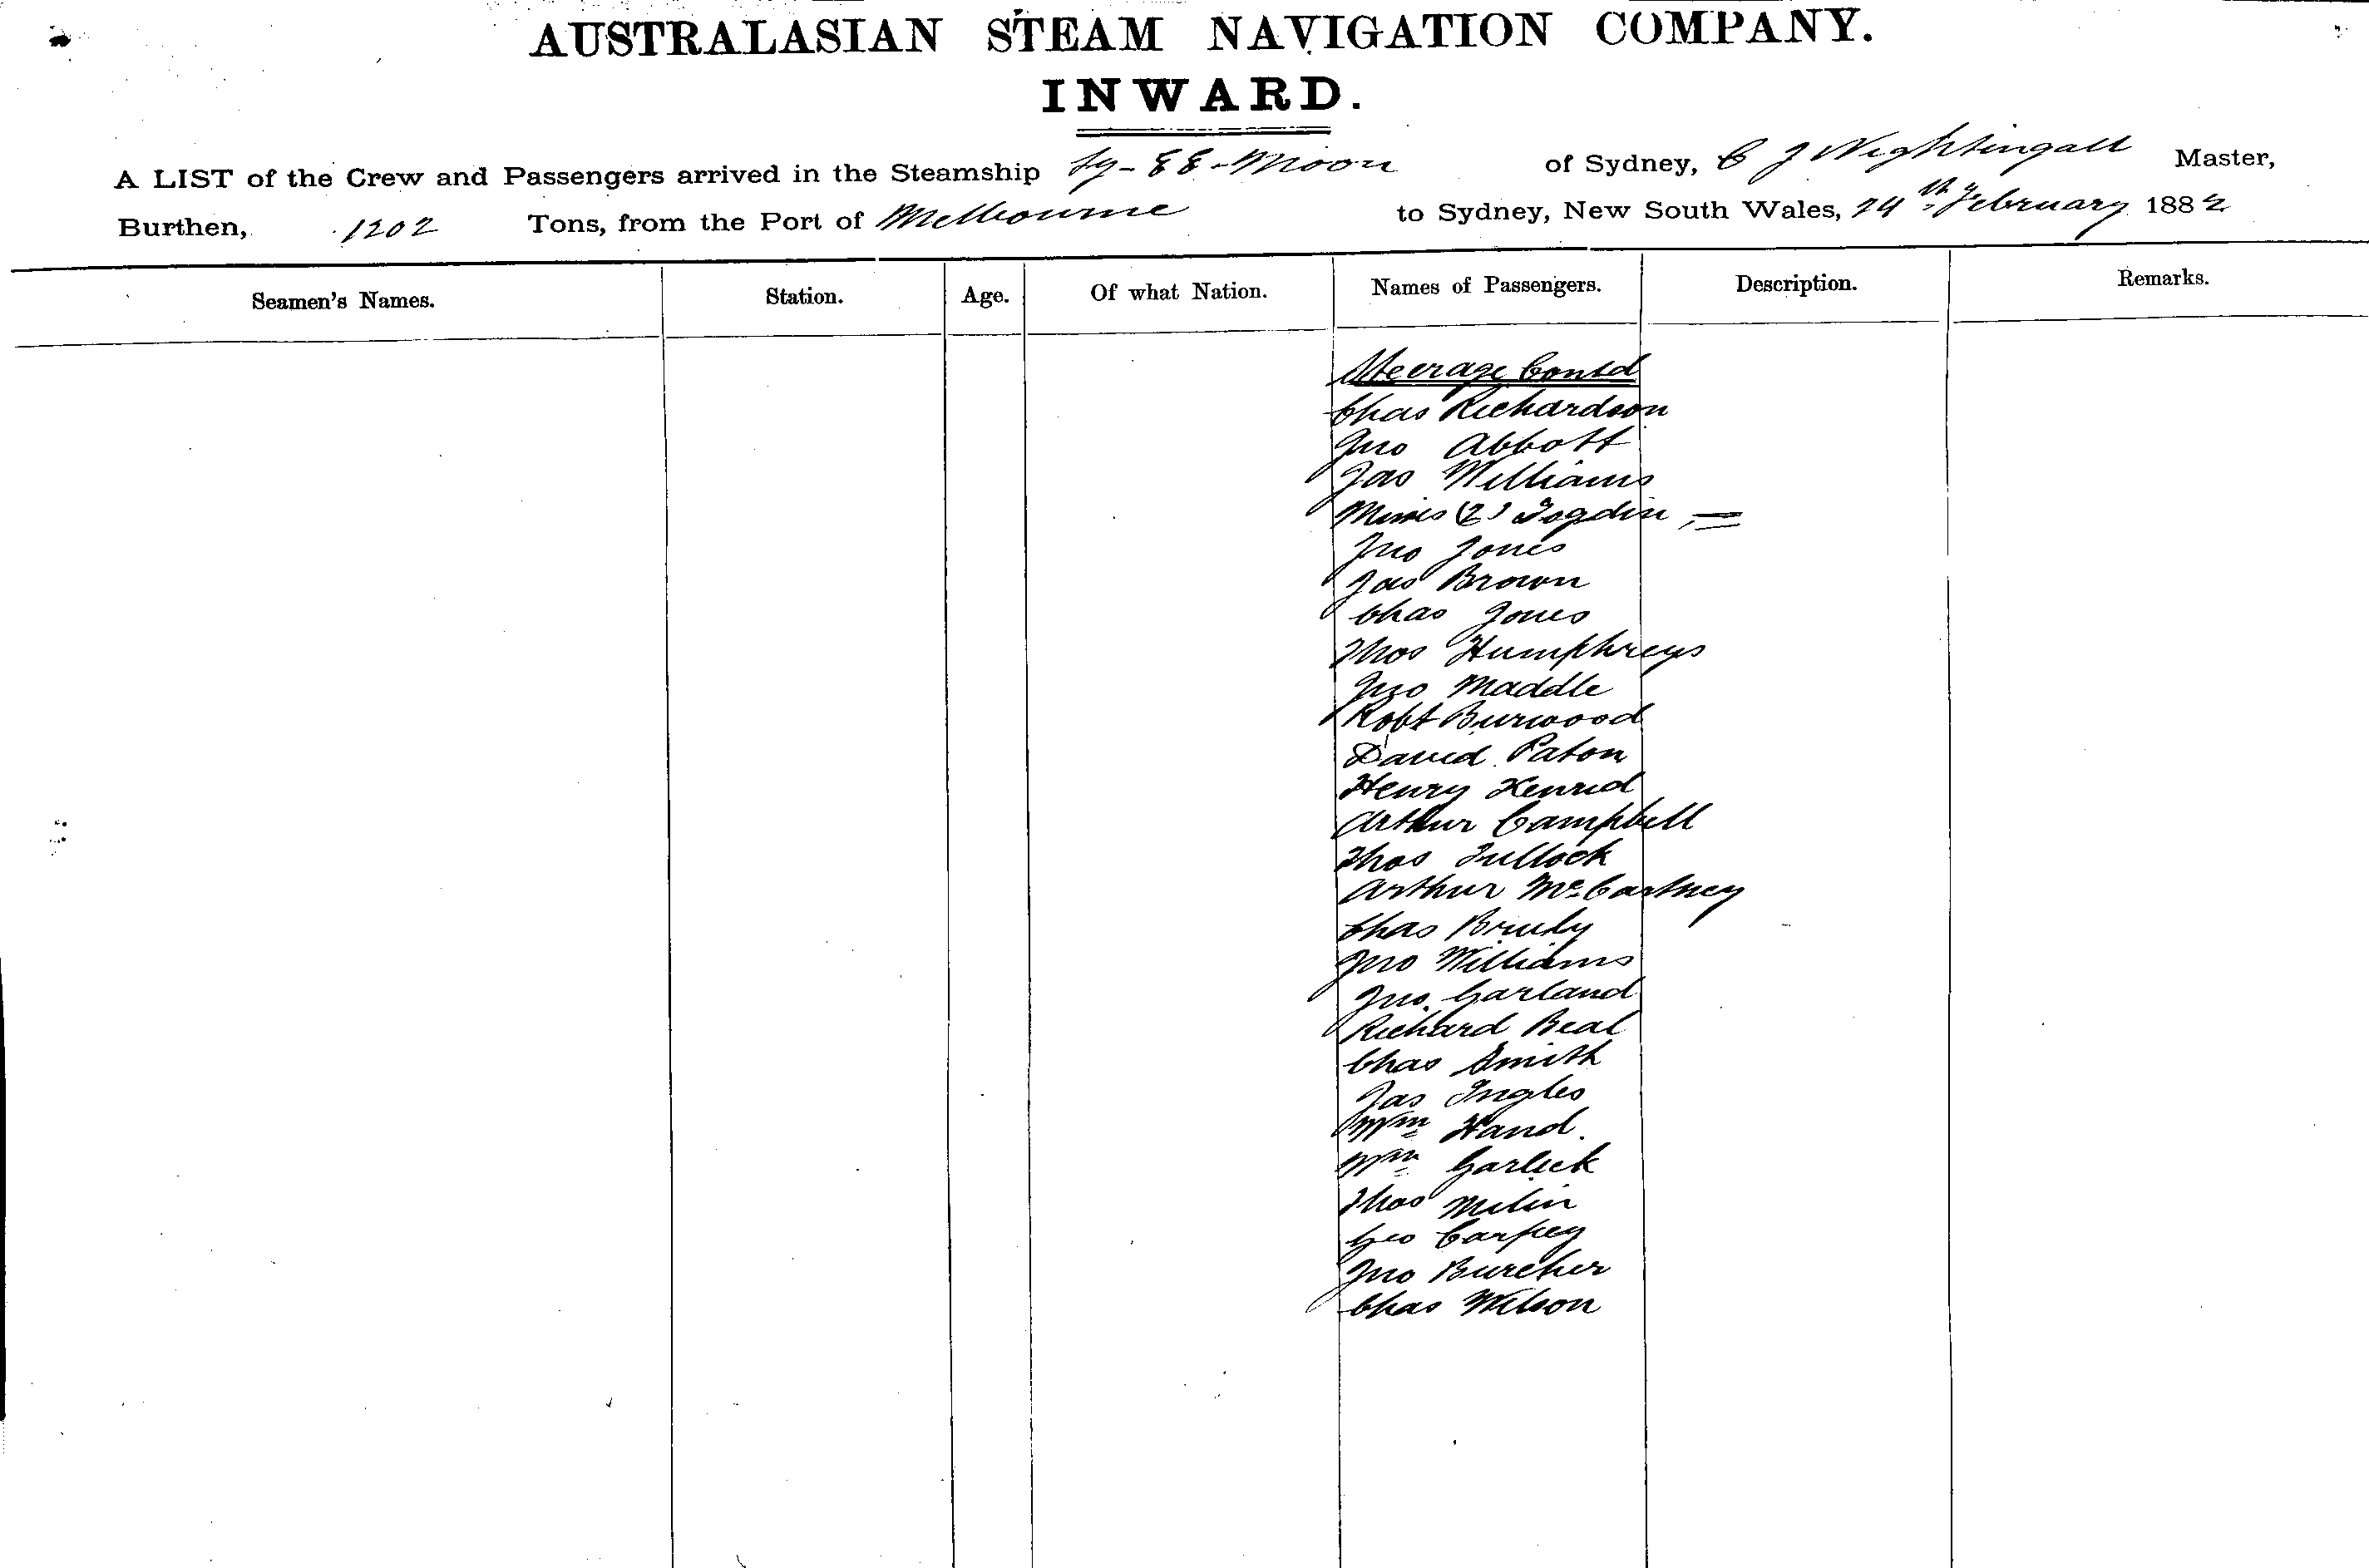 AUSTRALASIAN STEAM NAVIGATION COMPANY.
INWARD.
A LIST of the Crew and Passengers arrived in the Steamship Ly-EE-Moon of Sydney, C J Nightingall Master,
Burthen, 1202 Tons, from the Port of Melbourne to Sydney, New South Wales, 24th February 1882
Seamen's Names. Station. Age. Of what Nation. Names of Passengers. Description. Remarks.
Steerage Contd
Chas Richardson
Jno Abbott
Jas Williams
Misses (2)
Jno Jones
Jas Brown
Chas Jones
Thos Humphreys
Jno Maddle
Robt Burwood
David Paton
Henry
Arthur Campbell
Thos Tullock
Arthur McCartney
Chas
Jno Williams
Jno. Garland
Richard Beal
Chas Smith
Jas Ingles
Wm Hand
Wm Garlick
Thos
Geo
Jno Burcher
Chas Wilson